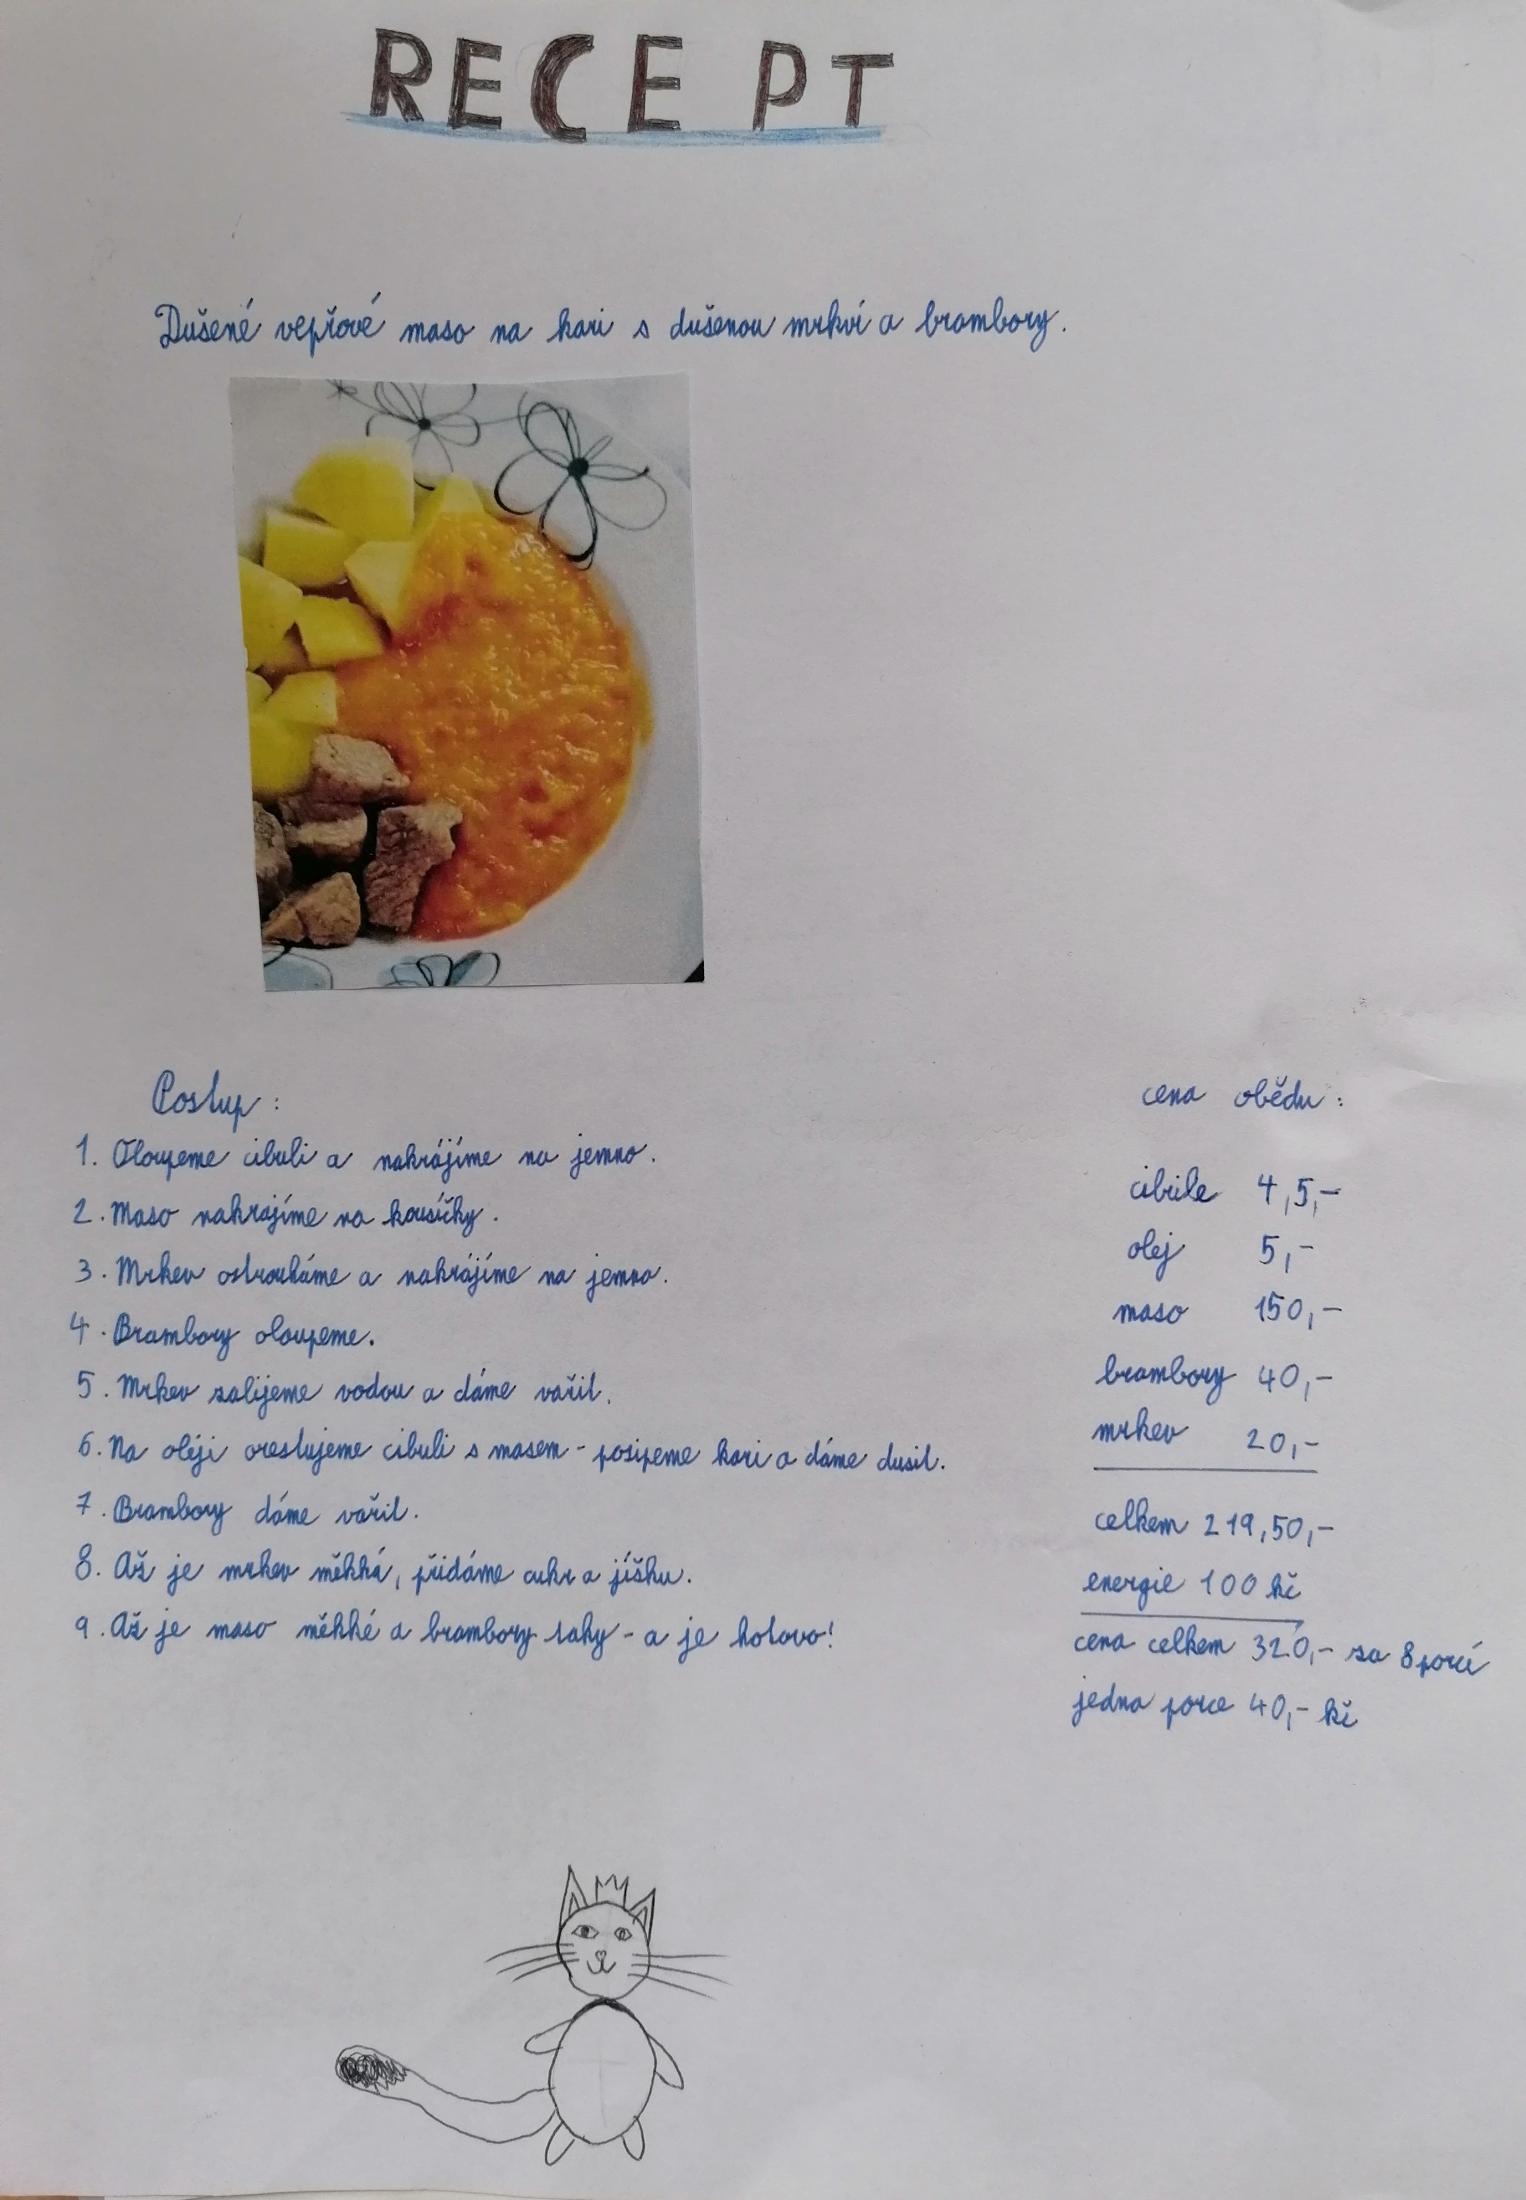 RECEPT
Dušené vepřové maso na kari s dušenou mrkví a brambory.
Postup:
1. Oloupeme cibuli a nakrájíme na jemno.
2. Maso nakrajíme na kousíčky.
3. Mrkev ostrouháme a nakrájíme na jemno.
4. Brambory oloupeme.
5. Mrkev zalijeme vodou a dáme vařit.
6. Na oléji orestujeme cibuli s masem - posipeme kari a dáme dusit.
7. Brambory dáme vařit.
8. Až je mrkev měkká, přidáme cukr a jíšku.
9. Až je maso měkké a brambory taky - a je hotovo!
cena obědu:
cibule 4,5,-
olej 5,-
maso 150,-
brambory 40,-
mrkev 20,-
celkem 219,50,-
energie 100 kč
cena celkem 320,- za 8 porcí
jedna porce 40,- kč